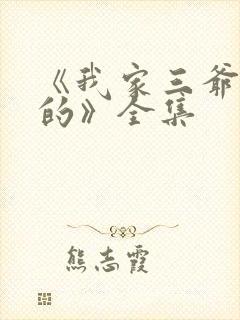 《我家三爷
的》全集
熊志霞